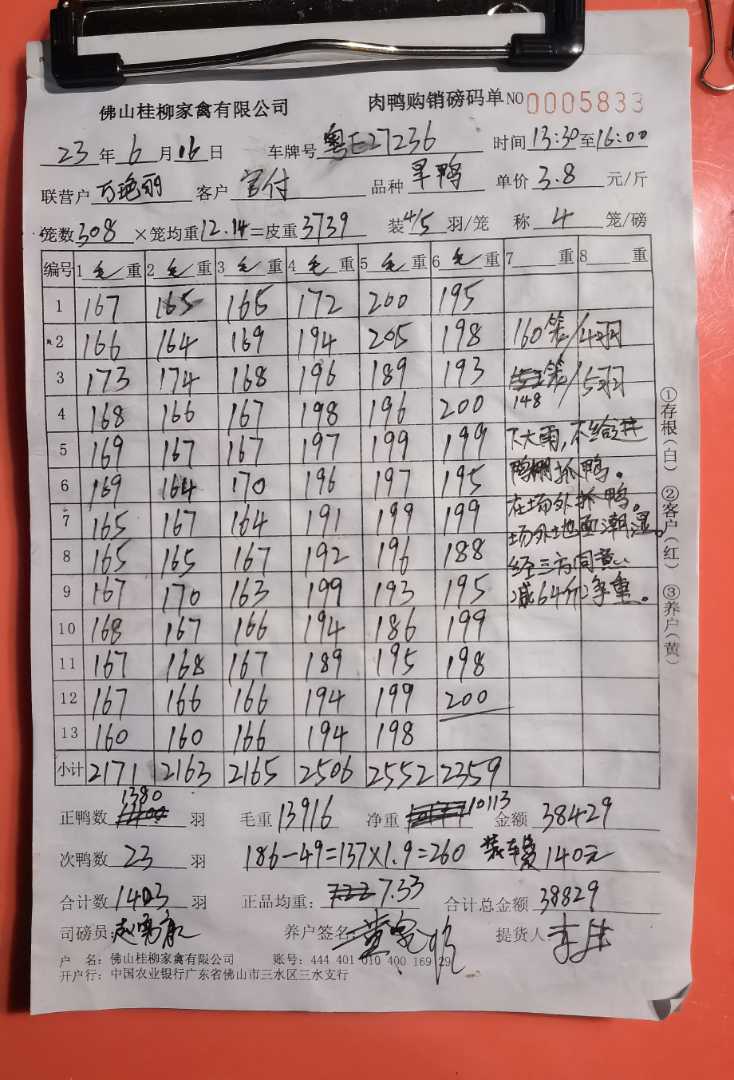 佛山桂柳家禽有限公司 肉鸭购销磅码单 NO 0005833
23 年 6 月 16 日 车牌号 粤E27236 时间 13:30 至 16:00
联营户 方艳丽 客户 官付 品种 旱鸭 单价 3.8 元/斤
笼数 308 ×笼均重 12.14 =皮重 3739 装 4/5 羽/笼 称 4 笼/磅
编号 1 毛 重 2 毛 重 3 毛 重 4 毛 重 5 毛 重 6 毛 重 7 重 8 重
1 167 165 165 172 200 195
2 166 164 169 194 205 198 160笼/4羽
3 173 174 168 196 189 193 148 笼/5羽
4 168 166 167 198 196 200
5 169 167 167 197 199 199 下大雨,不给进
6 169 164 170 196 197 195 鸭棚抓鸭。
7 165 167 164 191 199 199 在场外抓鸭。
场外地面潮湿。
8 165 165 167 192 196 188 经三方同意
9 167 170 163 199 193 195 减64斤净重。
10 168 167 166 194 186 199
11 167 168 167 189 195 198
12 167 166 166 194 199 200
13 160 160 166 194 198
小计 2171 2163 2165 2506 2552 2359
正鸭数 1380 羽 毛重 13916 净重 10113 金额 38429
次鸭数 23 羽 186-49=137×1.9=260 装车费 140元
合计数 1403 羽 正品均重: 7.33 合计总金额 38829
司磅员: 养户签名: 提货人:
户 名: 佛山桂柳家禽有限公司 账号: 444 401 010 400 169 29
开户行: 中国农业银行广东省佛山市三水区三水支行
①存根(白) ②客户(红) ③养户(黄)